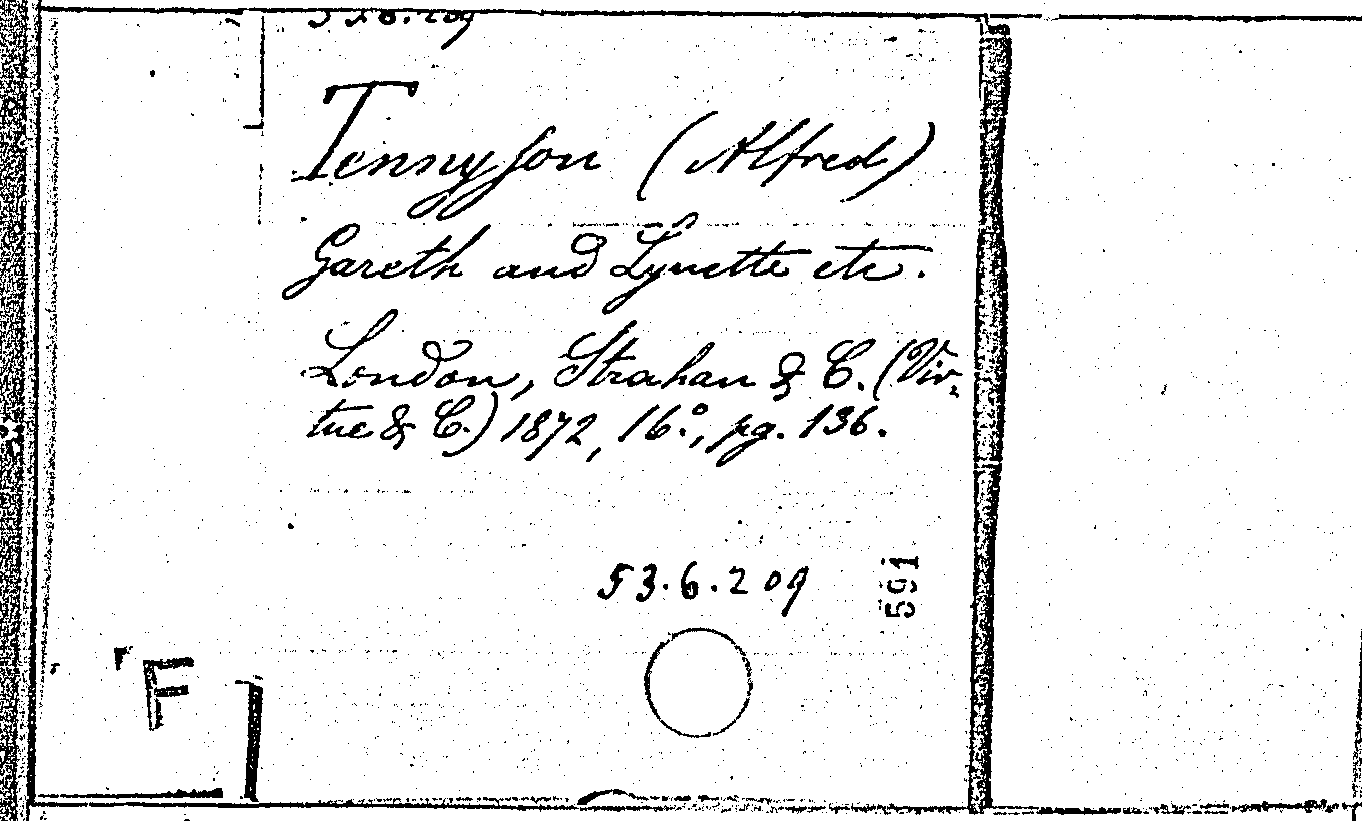 Tennyson (Alfred)
Gareth and Lynette etc.
London, Strahan & C. (Vir-
tue & C.) 1872, 16.º, pg. 136.
53.6.209
591
F